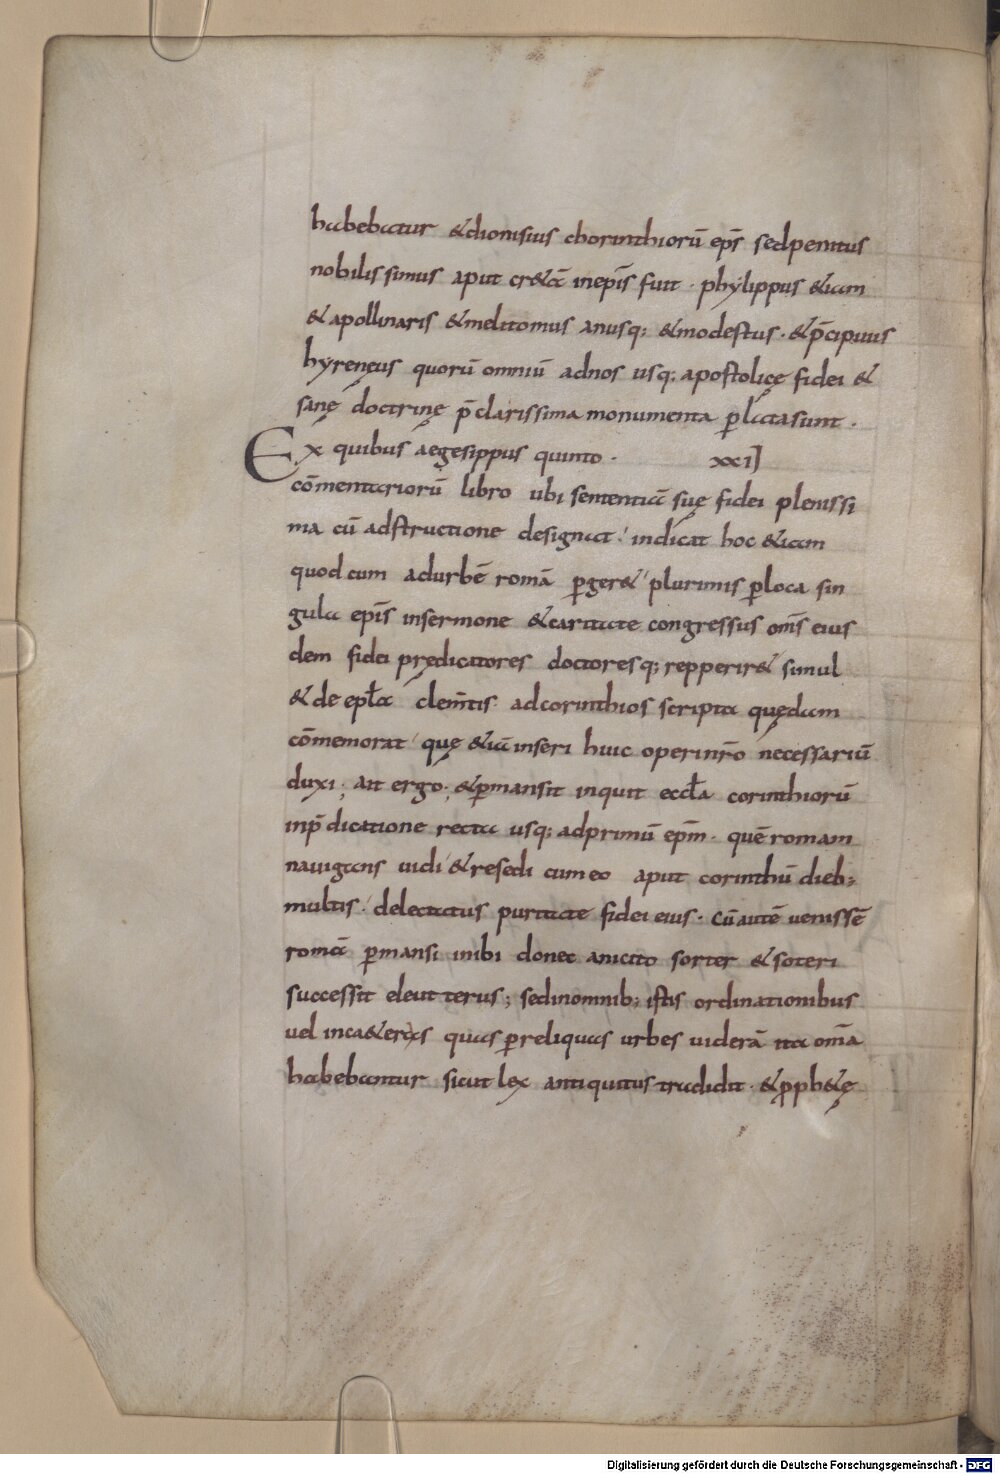 habebatur &dionisius chorinthiorū ep̄s sedpenitus
nobilissimus aput cr&ā inep̄is fuit · phylippus &iam
&apollinaris &melitomus anusq; &modestus · &p̄cipuus
hyreneus quorū omniū adnos usq; apostolicę fidei &
sanę doctrinę p̄clarissima monumenta ꝑlatasunt ·
Ex quibus aegesippus quinto · xxi]
cōmentariorū libro ubi sententiā suę fidei plenissi
ma cū adstructione designat · indicat hoc &iam
quod cum adurbē romā ꝑger& plurimis ꝑloca sin
gula ep̄is insermone &caritate congressus om̄s eius
dem fidei prędicatores doctoresq; repperir& simul
&de epl̄a clem̄tis adcorinthios scripta quędam
cōmemorat quę &iā inseri huic operinr̄o necessariū
duxi ; ait ergo ; &ꝑmansit inquit eccl̄a corinthiorū
inp̄dicatione recta usq; adprimū epm̄ · quē romam
nauigans uidi &resedi cum eo aput corinthū dieb;
multis · delectatus puritate fidei eius · cū autē uenissē
romā ꝑmansi inibi donec anicito sorter &soteri
successit eleut terus ; sedinomnib; istis ordinationibus
uel inca&eras quas ꝑreliquas urbes uiderā ita om̄a
habebantur sicut lex antiquitus tradidit · &ꝓph&ę
Digitalisierung gefördert durch die Deutsche Forschungsgemeinschaft - DFG